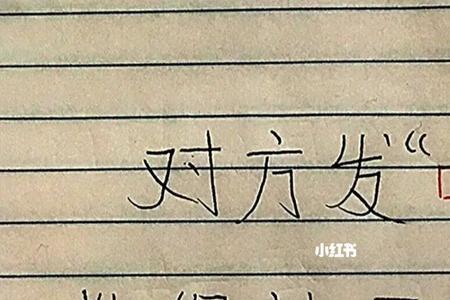 对方发“
小红书